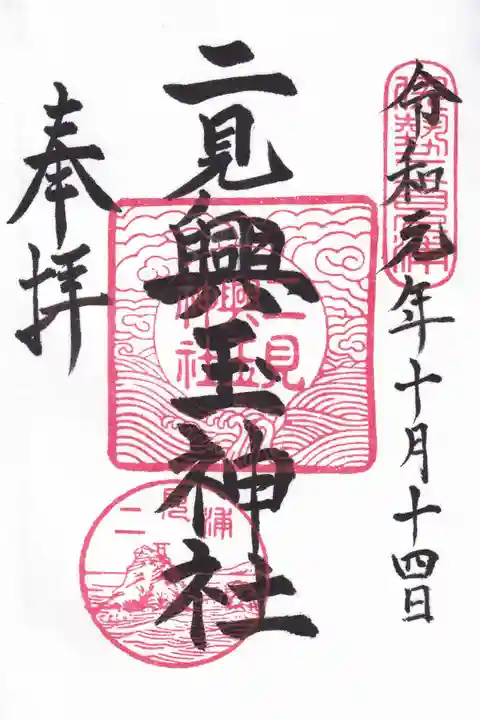 令和元年十月十四日
伊勢二見浦
二見興玉神社
二見興玉神社
二見浦
奉拝